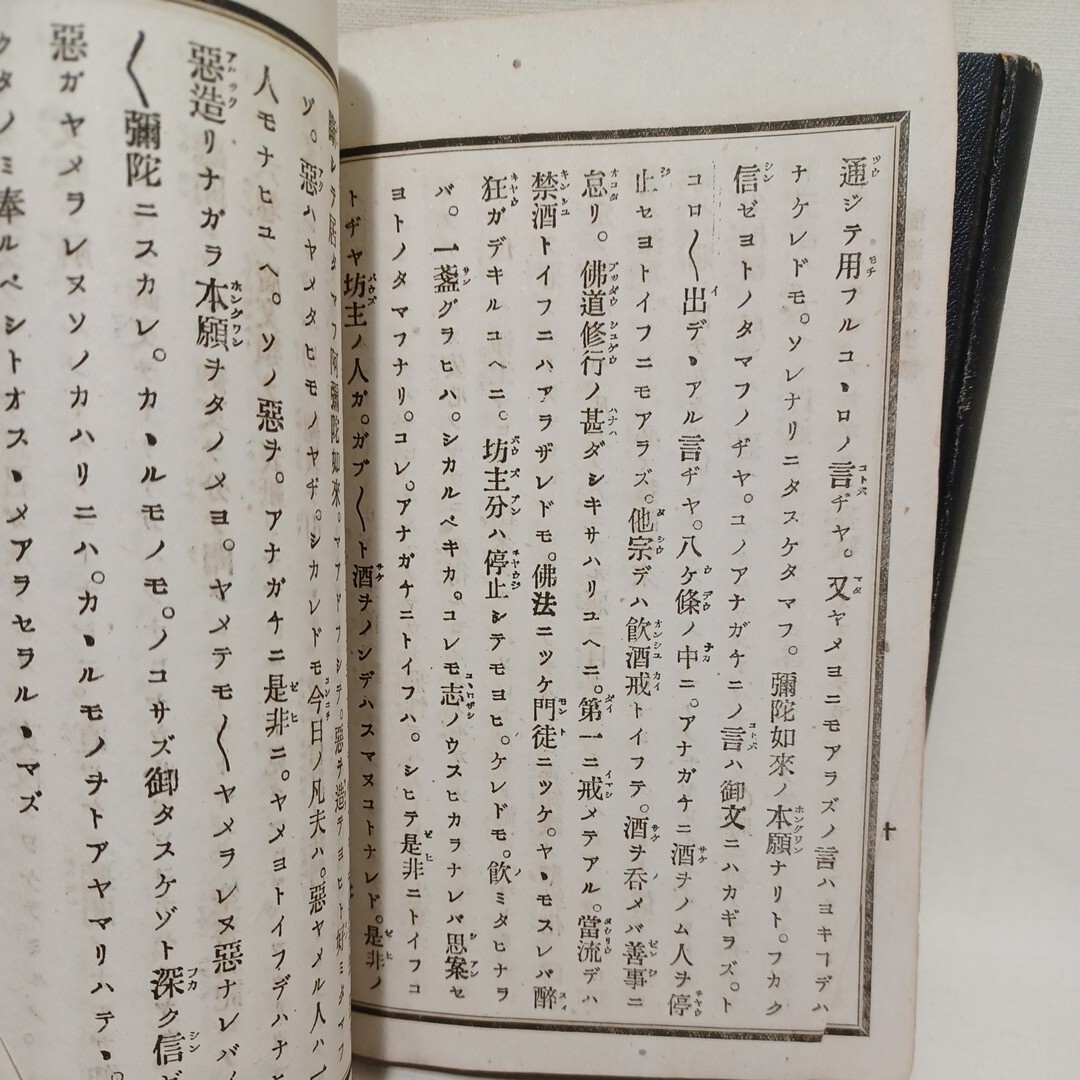 通ジテ用フルコヽロノ言ヂヤ。又ヤメヨニモアラズノ言ハヨキヿデハ
ナケレドモ。ソレナリニタスケタマフ。彌陀如來ノ本願ナリト。フカク
信ゼヨトノタマフノヂヤ。コノアナガチニノ言ハ御文ニハカギラズ。ト
コロ〱出デヽアル言ヂヤ。八ケ條ノ中ニ。アナガチニ酒ヲノム人ヲ停
止セヨトイフニモアラズ。他宗デハ飮酒戒トイフテ。酒ヲ呑メバ善事ニ
怠リ。佛道修行ノ甚ダシキサハリユヘニ。第一ニ戒メテアル。當流デハ
禁酒トイフニハアラザレドモ。佛法ニツケ門徒ニツケ。ヤヽモスレバ醉
狂ガデキルユヘニ。坊主分ハ停止シテモヨヒ。ケレドモ。飮ミタヒナラ
バ。一盞グヲヒハ。シカルベキカ。コレモ志ノウスヒカラナレバ思案セ
ヨトノタマフナリ。コレ。アナガチニトイフハ。シヒテ是非ニトイフコ
トヂヤ坊主ノ人ガ。ガブ〱ト酒ヲノンデハスマヌコトナレド。是非ノ
十
阿彌陀如來。
ゾ。惡ハヤメタヒモノヤヂ。シカレドモ今日ノ凡夫ハ。惡ヤメル人ハ一
人モナヒユヘ。ソノ惡ヲ。アナガチニ是非ニ。ヤメヨトイフデハナヒ
惡造リナガラ本願ヲタノメヨ。ヤメテモ〱ヤメラレヌ惡ナレバ
〱彌陀ニスカレ。カヽルモノモ。ノコサズ御タスケゾト深ク信
惡ガヤメラレヌソノカハリニハ。カヽルモノヲトアヤマリハテヽ。
タノミ奉ルベシトオスヽメアラセラルヽマズ